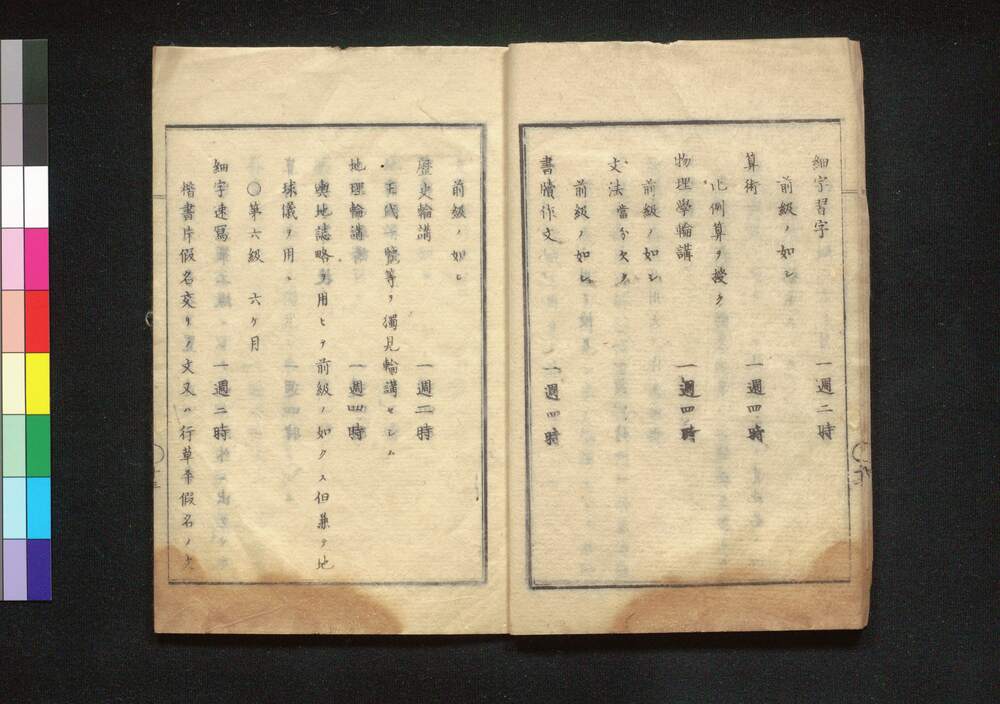 細字習字 一週二時
前級ノ如シ
算術 一週四時
比例算ヲ授ク
物理學輪講 一週四時
前級ノ如シ
文法當分欠ク
前級ノ如シ
書牘作文 一週四時
前級ノ如シ
歴史輪講 一週二時
王代一覽等ヲ獨見輪講セシム
地理輪講 一週四時
輿地誌略ヲ用ヒテ前級ノ如クス但兼テ地
球儀ヲ用ユ
〇第六級 六ケ月
細字速寫 一週二時
楷書片假名交リノ文又ハ行草平假名ノ文